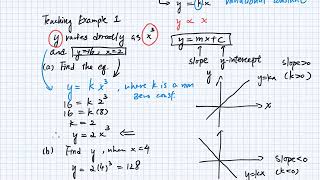 y = kx variational constant
y ∝ x
Teaching Example 1
y varies directly as x³
and y=16, x=2
(a) Find the eq.
y = k x³, where k is a non zero const.
16 = k 2³
16 = k(8)
k = 2
∴ y = 2x³ ⇐
(b) Find y, when x=4
y = 2(4)³ = 128
y = mx + c
slope y-intercept
slope>0
(k>0)
y=kx
x
slope<0
(k<0)
y=kx